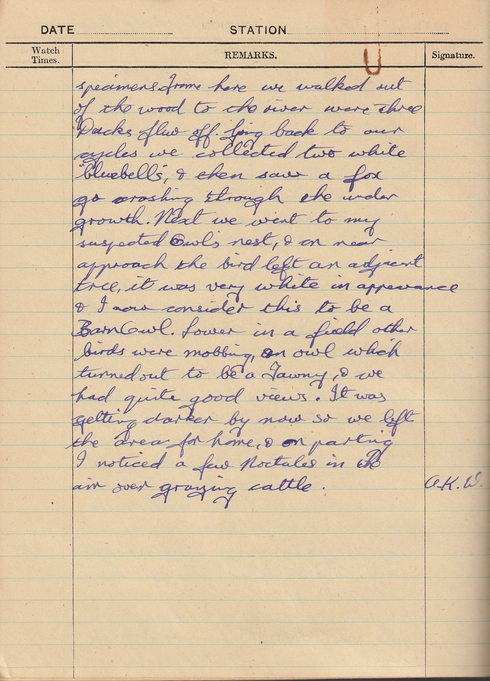 DATE STATION
Watch Times. REMARKS. Signature.
specimens from here we walked out
of the wood to the river were three
Ducks flew off. Going back to our
cycles we collected two white
bluebells, & then saw a fox
go crashing through the under
growth. Next we went to my
suspected Owl's nest, & on near
approach the bird left an adjcent
tree, it was very white in appearance
& I now consider this to be a
Barn Owl. Lower in a field other
birds were mobbing, an owl which
turned out to be a Tawny, & we
had quite good views. It was
getting darker by now so we left
the area for home, & on parting
I noticed a few Noctules in the
air over grazing cattle. A.K.W.